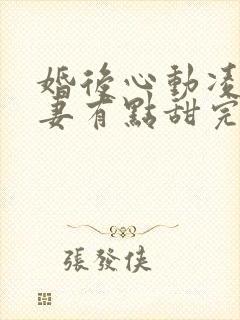 婚後心動凌
妻有點甜完
張發俠